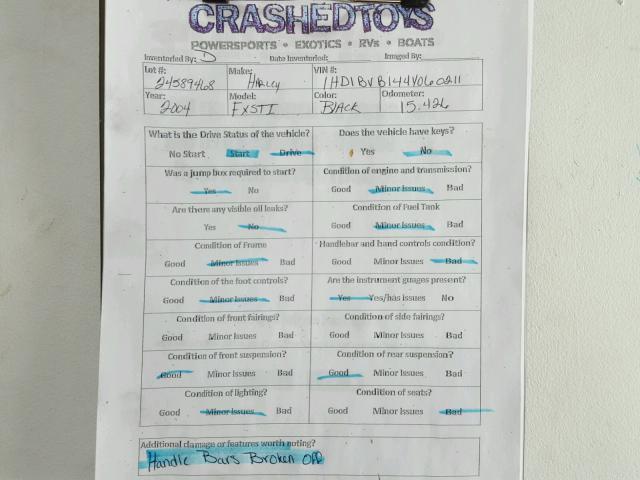 CRASHEDTOYS
POWERSPORTS • EXOTICS • RVs • BOATS
Inventoried By: D Date Inventoried: Imaged By:
Lot #: Make: VIN #:
24589468 Harley 1HD1BVB144Y060211
Year: Model: Color: Odometer:
2004 FXSTI Black 15,426
What is the Drive Status of the vehicle? Does the vehicle have keys?
No Start Start Drive Yes No
Was a jump box required to start? Condition of engine and transmission?
Yes No Good Minor Issues Bad
Are there any visible oil leaks? Condition of Fuel Tank
Yes No Good Minor Issues Bad
Condition of Frame Handlebar and hand controls condition?
Good Minor Issues Bad Good Minor Issues Bad
Condition of the foot controls? Are the instrument guages present?
Good Minor Issues Bad Yes Yes/has issues No
Condition of front fairings? Condition of side fairings?
Good Minor Issues Bad Good Minor Issues Bad
Condition of front suspension? Condition of rear suspension?
Good Minor Issues Bad Good Minor Issues Bad
Condition of lighting? Condition of seats?
Good Minor Issues Bad Good Minor Issues Bad
Additional damage or features worth noting?
Handle Bars Broken Off